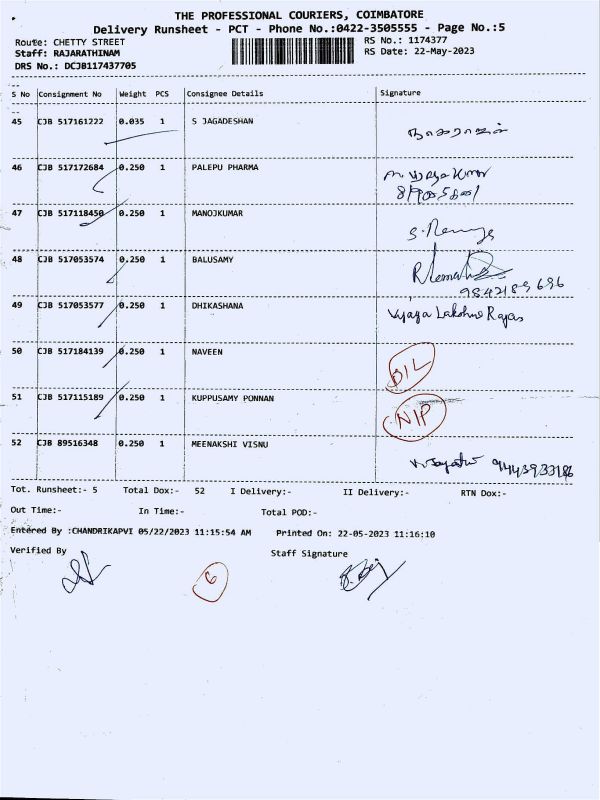 THE PROFESSIONAL COURIERS, COIMBATORE
Delivery Runsheet - PCT - Phone No.:0422-3505555 - Page No.:5
Route: CHETTY STREET RS No.: 1174377
Staff: RAJARATHINAM RS Date: 22-May-2023
DRS No.: DCJB117437705
S No Consignment No Weight PCS Consignee Details Signature
45 CJB 517161222 0.035 1 S JAGADESHAN
46 CJB 517172684 0.250 1 PALEPU PHARMA
47 CJB 517118450 0.250 1 MANOJKUMAR
48 CJB 517053574 0.250 1 BALUSAMY
9842189696
49 CJB 517053577 0.250 1 DHIKASHANA
Vijaya Lakshmi
50 CJB 517184139 0.250 1 NAVEEN
D/L
51 CJB 517115189 0.250 1 KUPPUSAMY PONNAN
NIP
52 CJB 89516348 0.250 1 MEENAKSHI VISNU
Tot. Runsheet:- 5 Total Dox:- 52 I Delivery:- II Delivery:- RTN Dox:-
Out Time:- In Time:- Total POD:-
Entered By :CHANDRIKAPVI 05/22/2023 11:15:54 AM Printed On: 22-05-2023 11:16:10
Verified By Staff Signature
6